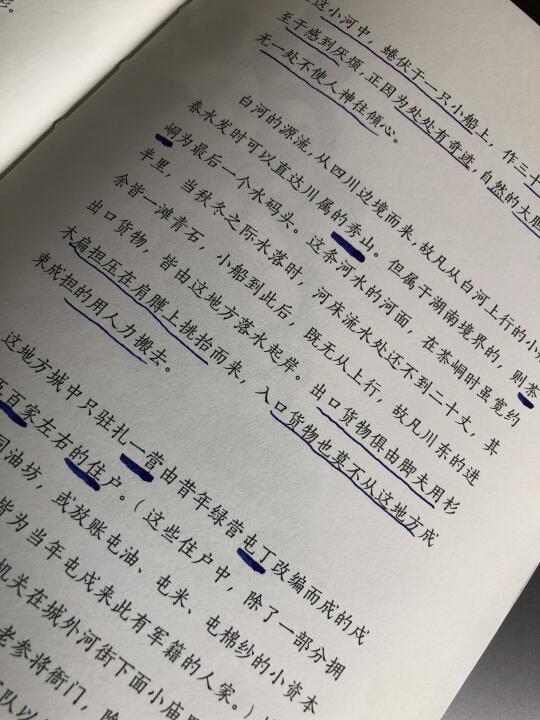 这小河中，蜷伏于一只小船上，作三十
至于感到厌烦，正因为处处有奇迹，自然的大胆
无一处不使人神往倾心。
白河的源流，从四川边境而来，故凡从白河上行的小
春水发时可以直达川属的秀山。但属于湖南境界的，则茶
峒为最后一个水码头。这条河水的河面，在茶峒时虽宽约
半里，当秋冬之际水落时，河床流水处还不到二十丈，其
余皆一滩青石，小船到此后，既无从上行，故凡川东的进
出口货物，皆由这地方落水起岸。出口货物俱由脚夫用杉
木扁担压在肩膊上挑抬而来，入口货物也莫不从这地方成
束成担的用人力搬去。
这地方城中只驻扎一营由昔年绿营屯丁改编而成的戍
百家左右的住户。（这些住户中，除了一部分拥
油坊，或放账屯油、屯米、屯棉纱的小资本
皆为当年屯戍来此有军籍的人家。）
机关在城外河街下面小庙里
老参将衙门，除
队以